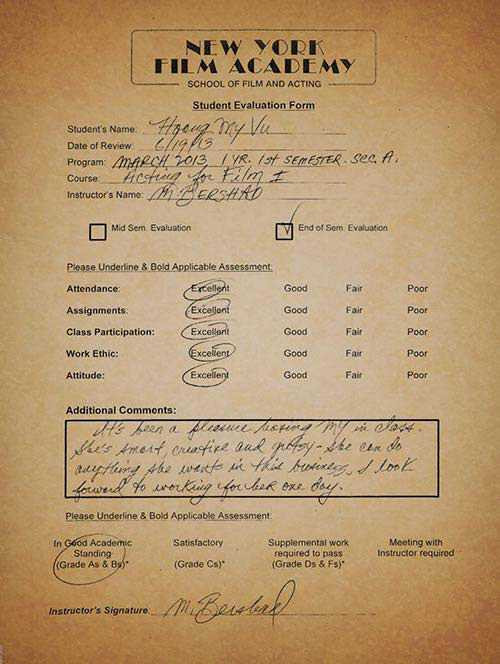 NEW YORK
FILM ACADEMY
SCHOOL OF FILM AND ACTING
Student Evaluation Form
Student's Name: Hoang My Vu
Date of Review: 6/19/13
Program: MARCH 2013, 1 YR. 1st SEMESTER. SEC. A.
Course: Acting for Film I
Instructor's Name: M. BERSHAD
Mid Sem. Evaluation End of Sem. Evaluation
Please Underline & Bold Applicable Assessment:
Attendance: Excellent Good Fair Poor
Assignments: Excellent Good Fair Poor
Class Participation: Excellent Good Fair Poor
Work Ethic: Excellent Good Fair Poor
Attitude: Excellent Good Fair Poor
Additional Comments:
It's been a pleasure having My in class.
She's smart, creative and gutsy - she can do
anything she wants in this business, I look
forward to working for her one day.
Please Underline & Bold Applicable Assessment:
In Good Academic Satisfactory Supplemental work Meeting with
Standing required to pass Instructor required
(Grade As & Bs)* (Grade Cs)* (Grade Ds & Fs)*
Instructor's Signature: M. Bershad